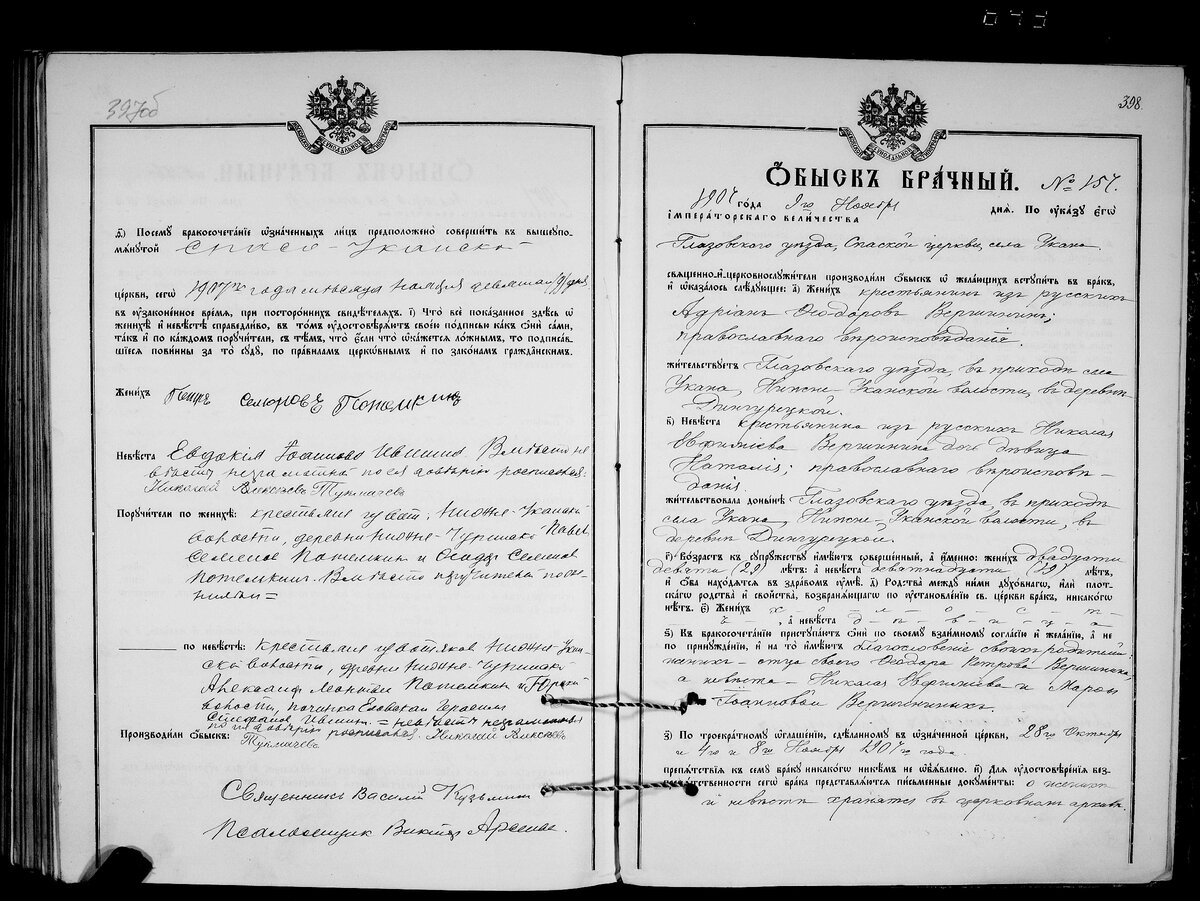 397об
з҃) Посему бракосочетанїе ѡзначенныхъ лицъ предположено совершить въ вышеупо-
мѧнутой Спасо - Уканской
церкви, сегѡ 1907го года мѣсяца Ноября девятаго (9) дня
въ узаконенное времѧ, при постороннихъ свидѣтелѧхъ. і) Что всѐ показанное здѣсь ѡ
женихѣ и невѣстѣ справедливо, въ томъ удостовѣрѧютъ своею подписью какъ ѡни сами,
такъ и по каждомъ поручители, съ тѣмъ, что если что ѡкажетсѧ ложнымъ, то подписав-
шїесѧ повинны за то суду, по правиламъ церковнымъ и по законамъ гражданскимъ.
Женихъ Петръ Семеновъ Потемкинъ
Невѣста Евдокія Іоаннова Ившина Вмѣсто не
вѣсты неграмотной по ея довѣрію росписался
Николай Алексѣевъ Тукмачевъ
Поручители по женихѣ: крестьяне Нижне-Уканской
волости, деревни Нижне- Павел
Семенов Потемкин и Семенов
Потемкин. Вмѣсто поручителей
по невѣстѣ: Крестьяне Нижне-Укан-
ской волости, деревни Нижне-
Александр Леонтьев Потемкин и
волости, починка Герасим
Стефанов Ившин = неграмотны
по их довѣрію росписался Николай Алексѣевъ
Производили ѡбыскъ: Тукмачевъ
Священникъ Василій Кузьмин
Псаломщик Виктор
398
Ѻбыскъ брачный. № 157.
1907 года 9го Ноября днѧ. По указу егѡ
императорскаго величества
Глазовскаго уѣзда, Спаской церкви, села Укана
свѧщенно-и-церковнослужители производили ѡбыскъ ѡ желающихъ вступить въ бракъ,
и ѡказалось слѣдующее: а) Женихъ крестьянинъ изъ русскихъ
Адріанъ Ѳеодоровъ Вершининъ;
православнаго вѣроисповѣданія.
жительствуетъ Глазовскаго уѣзда, въ приходѣ села
Укана, Нижне-Уканской волости, въ деревнѣ
Дингурецкой.
в) Невѣста крестьянина изъ русскихъ Николая
Евфиміева Вершинина дочь дѣвица
Наталія; православнаго вѣроисповѣ-
данія.
жительствовала донынѣ Глазовскаго уѣзда, въ приходѣ
села Укана, Нижне-Уканской волости, въ
деревнѣ Дингурецкой.
г) Возрастъ къ супружеству имѣютъ совершенный, а именно: женихъ двадцати
девяти (29) лѣтъ: а невѣста девятнадцати (19) лѣтъ,
и ѡба находѧтсѧ въ здравомъ умѣ. д) Родства между ними духовнагѡ, или плот-
скагѡ родства и свойства, возбранѧющагѡ по установленїю св. церкви бракъ, никакогѡ
нѣтъ. є) Женихъ х - о - л - о - с - т -
ъ - , а невѣста д - ѣ - в - и - ц - а -
ѕ) Въ бракосочетанїе приступаютъ ѡни по своему взаимному согласїю и желанїю, а не
по принужденїю, и на то имѣютъ благословеніе своихъ родителей:
женихъ - отца своего Ѳеодора Петрова Вершинина,
а невѣста - Николая Евфиміева и Марѳы
Іоанновой Вершининыхъ.
з) По троекратному ѡглашенїю, сдѣланному въ ѡзначенной церкви, 28го Октября
и 4го и 8го Ноября 1907 года.
препѧтствїѧ къ сему браку никакогѡ никѣмъ не ѡбъѧвлено. и) Длѧ удостовѣренїѧ без-
препѧтственности сегѡ брака представлѧютсѧ письменные документы: о женихѣ
и невѣстѣ хранятся въ церковномъ архивѣ.